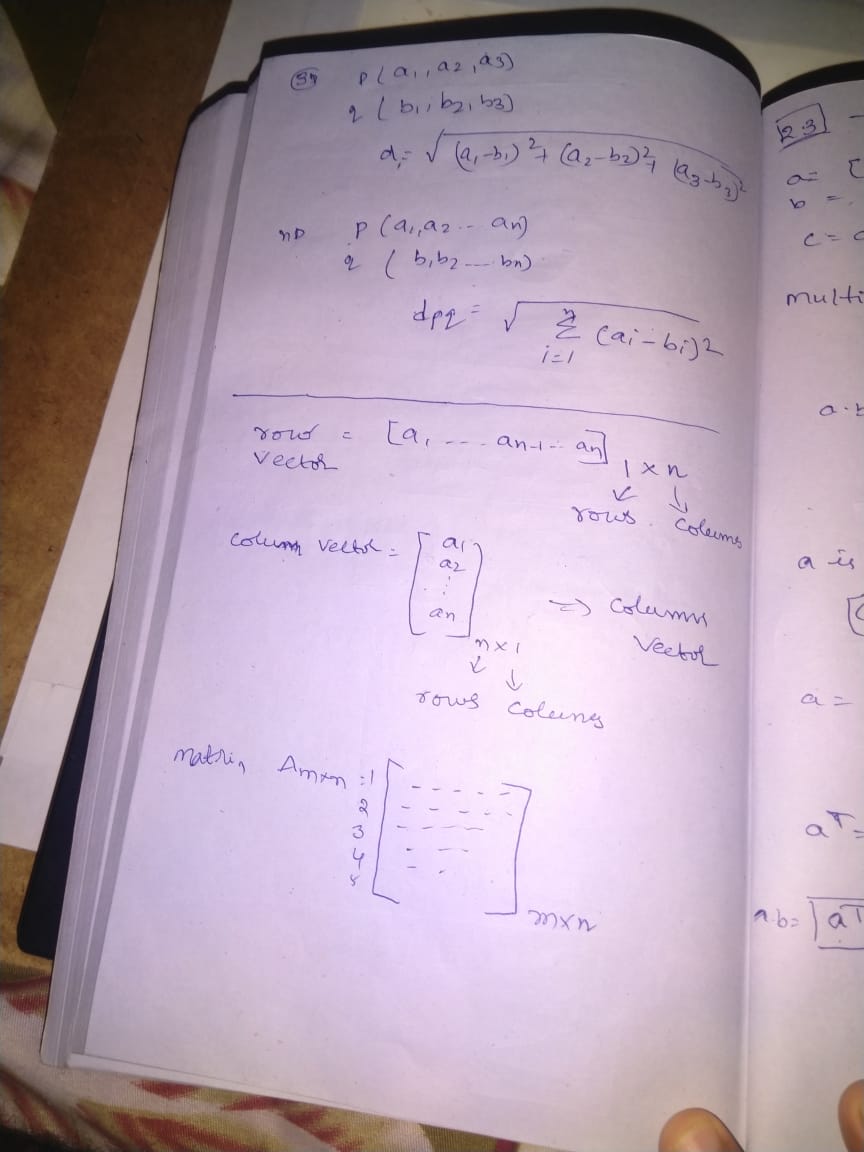 3D p(a1, a2, a3)
q (b1, b2, b3)
d = √(a1-b1)²+ (a2-b2)²+ (a3-b3)²
nD p (a1,a2 -- an)
q ( b1b2 --- bn)
dpq = √ n Σ i=1 (ai-bi)²
row = [a1 --- an-1 -- an] 1×n
vector
↓ ↓
rows colums
column vector = [a1
a2
⋮
an] n×1
⇒ column
vector
↓ ↓
rows colums
matrix Am×n = 1 [ - - - - -
2 - - - - -
3 - - - -
4 - - -
5 - - ] m×n
2.3
a = [
b =
c =
multi
a.b
a is
a =
aT =
a.b = aT